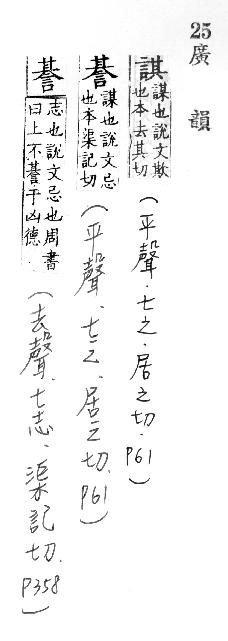 25廣韻
諆 謀也說文欺也本去其切
(平聲.七之.居之切.P61)
諅 謀也說文忌也本渠記切
(平聲.七之.居之切.P61)
諅 志也說文忌也周書曰上不諅于凶德
(去聲.七志.渠記切.P358)